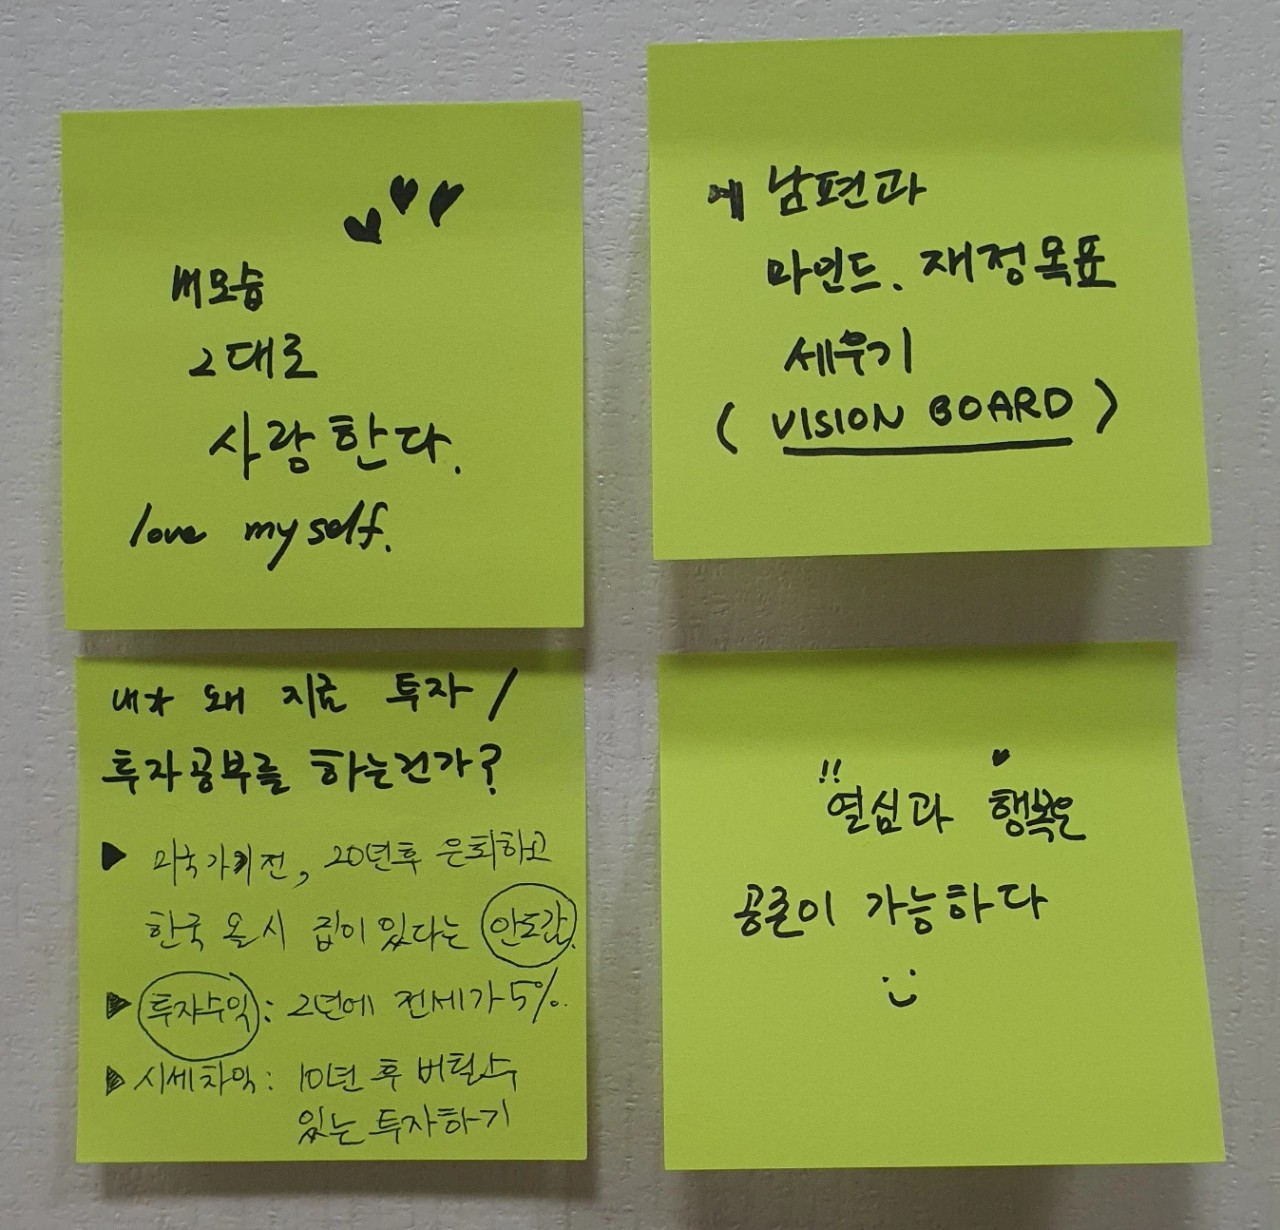 내모습
그대로
사랑한다.
love myself.
남편과
마인드. 재정목표
세우기
( VISION BOARD )
내가 왜 지금 투자/
투자공부를 하는건가?
▶ 미국가기전, 20년후 은퇴하고
한국 올시 집이 있다는 안도감.
▶ 투자수익: 2년에 전세가 5%.
▶ 시세차익: 10년 후 버틸수
있는 투자하기
!!
열심과 행복은
공존이 가능하다